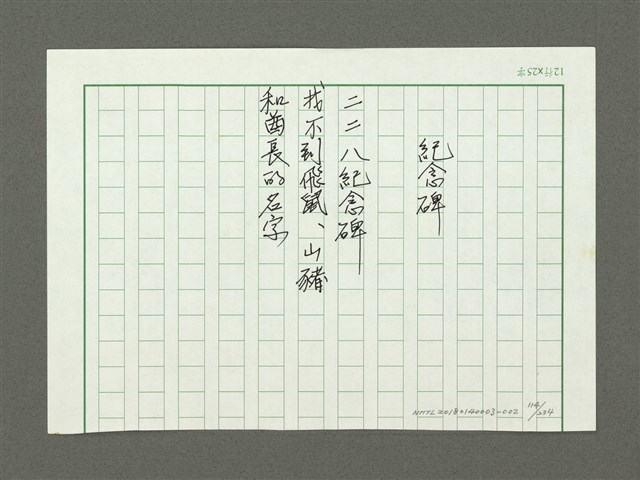 12行×25字
紀念碑
二二八紀念碑
找不到飛鼠、山豬
和酋長的名字
NMTL20180140003-002
114/234